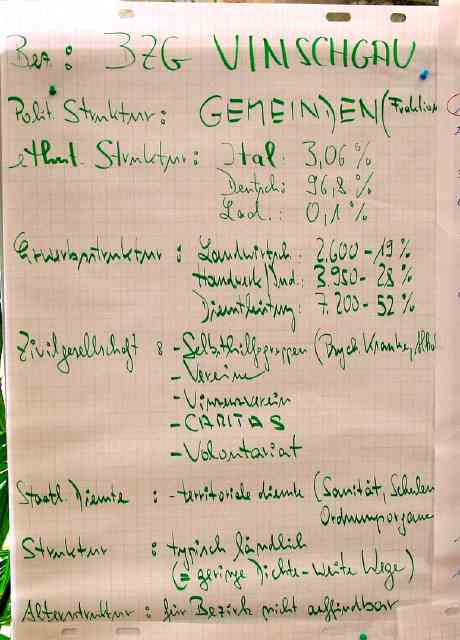 Bez: BZG VINSCHGAU
Polit. Struktur: GEMEINDEN (Fraktion
ethn. Struktur: Ital: 3,06 %
Deutsch: 96,8 %
Lad.: 0,1 %
Erwerbsstruktur: Landwirtsch. 2.600 - 19 %
Handwerk/Ind.: 3.950 - 28 %
Dienstleistung: 7.200 - 52 %
Zivilgesellschaft: - Selbsthilfegruppen (Psych Kranke,
- Vereine
- Vinzenzverein
- CARITAS
- Volontariat
Staatl Dienste: - territoriale dienste (Sanität, Schulen
Ordnungsorgane
Struktur: typisch ländlich
(= geringe Dichte - weite Wege)
Altersstruktur: für Bezirk nicht auffindbar